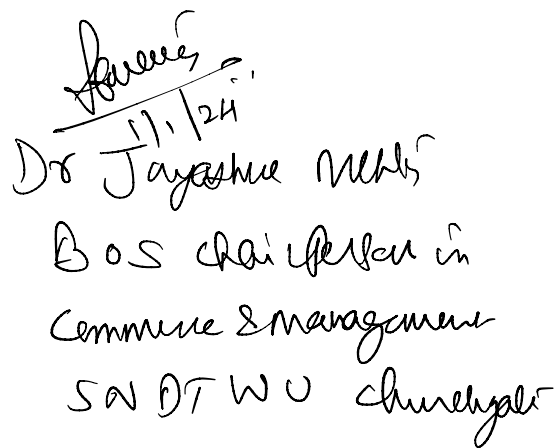 1/1/24
Dr Jayashree Mehta
BOS Chairperson in
Commerce & Management
SNDTWU Churchgate